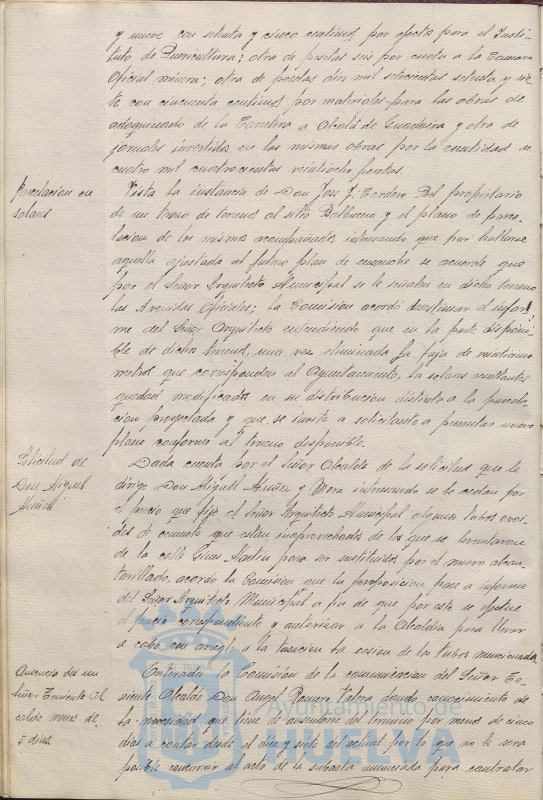 y nueve con setenta y cinco centimos por efectos para el Insti-
tuto de Puericultura; otra de pesetas seis por cuota a la Camara
Oficial minera; otra de pesetas diez mil setecientas setenta y sie-
te con cincuenta centimos por materiales para las obras de
adoquinado de la Carretera a Alcalá de Guadaira y otra de
jornales invertidos en las mismas obras por la cantidad de
cuatro mil cuatrocientas veintiocho pesetas.
Parcelacion en
solares
Vista la instancia de Don Jose J. Cordero Bel propietario
de un trozo de terreno al sitio Balbueno y el plano de parce-
lacion de los mismos acompañados interesando que por hallarse
aquella ajustada al futuro plan de ensanche se acuerde que
por el Señor Arquitecto Municipal se le señalen en dicho terreno
las Avenidas Oficiales; la Comision acordó desestimar el infor-
me del Señor Arquitecto entendiendo que en la parte disponi-
ble de dichos terrenos, una vez eliminada la faja de veinticinco
metros que corresponden al Ayuntamiento, los solares resultantes
quedan modificados en su distribucion distinta a la parcela-
cion proyectada y que se invite a solicitante a presentar nuevo
plano conforme al terreno disponible.
Solicitud de
Don Miguel
Muñoz
Dada cuenta por el Señor Alcalde de la solicitud que le
dirige Don Miguel Muñoz y Mora interesando se le cedan por
el precio que fije el Señor Arquitecto Municipal algunos tubos ovoi-
des de cemento que estan inaprovechados de los que se levantaron
de la calle Gines Martin para ser sustituidos por el nuevo alcan-
tarillado, acordó la Comision que la proposicion pase a informe
del Señor Arquitecto Municipal a fin de que por este se
el precio correspondiente y autorizar a la Alcaldia para llevar
a cabo con arreglo a la tasacion la cesion de los tubos mencionados
Ausencia de un
Señor Teniente Al
calde menos de
5 dias.
Enterada la Comision de la comunicacion del Señor Te-
niente Alcalde Don Angel Romero Valera dando conocimiento de
la necesidad que tiene de ausentarse del termino por menos de cinco
dias a contar desde el diez y siete del actual por lo que no le sera
posible concurrir al acto de la subasta anunciada para contratar
Ayuntamiento de
HUELVA